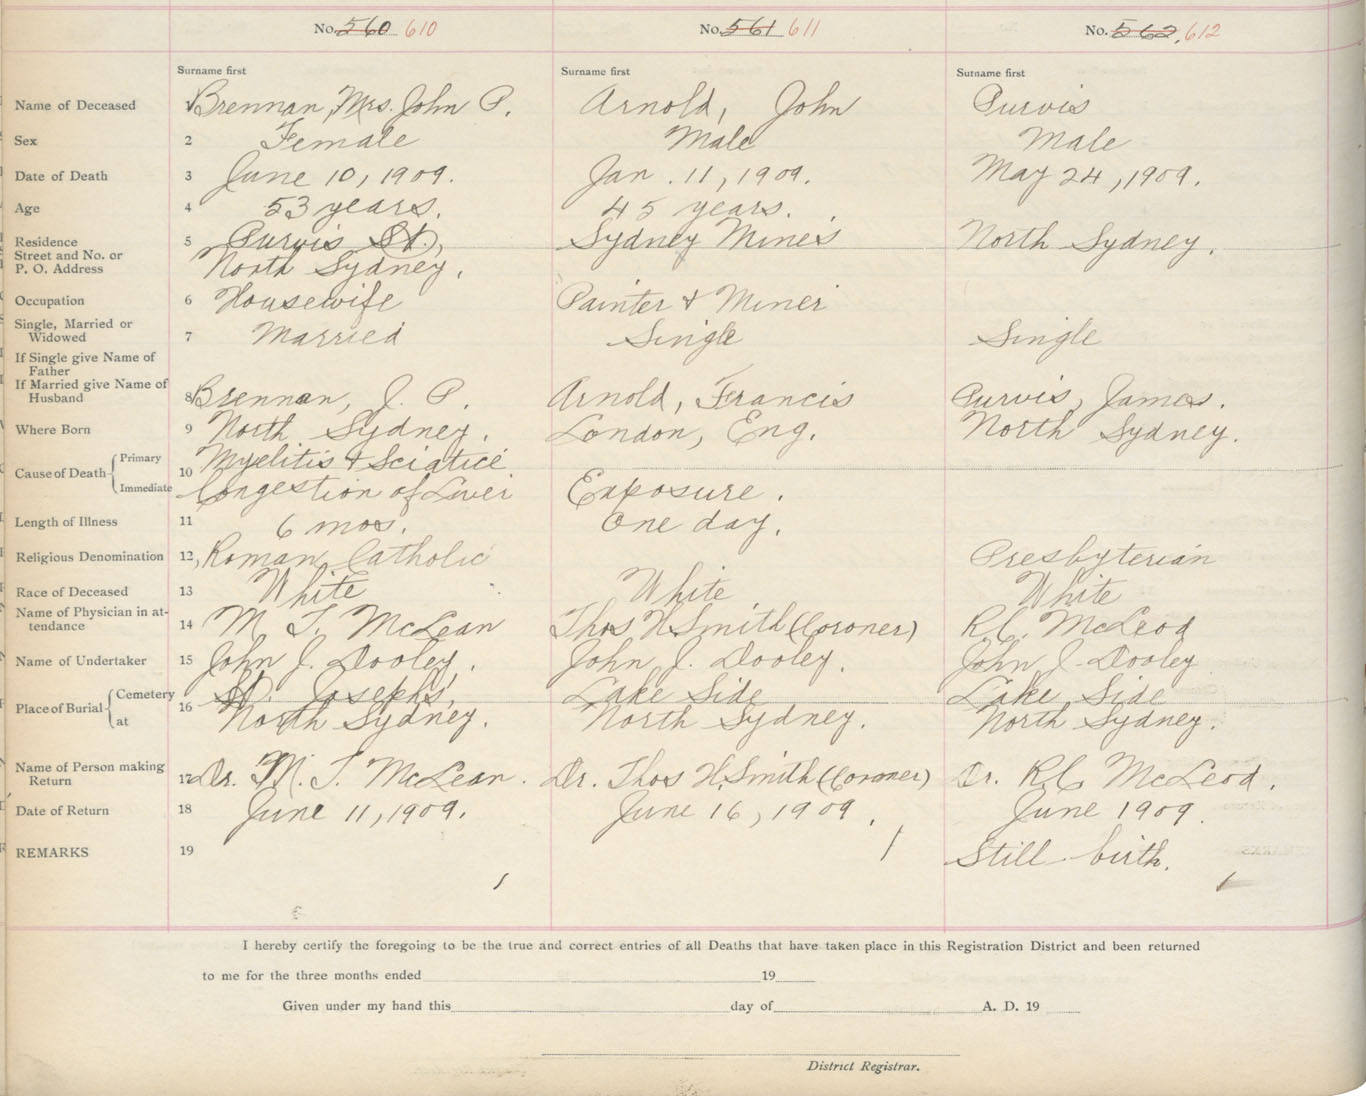 No. 560 610 No. 561 611 No. 562 612
Surname first Surname first Surname first
Name of Deceased 1 Brennan, Mrs. John P. Arnold, John Purvis
Sex 2 Female Male Male
Date of Death 3 June 10, 1909. Jan. 11, 1909. May 24, 1909.
Age 4 53 years. 45 years.
Residence 5 Purvis St., Sydney Mines North Sydney.
Street and No. or
P. O. Address North Sydney.
Occupation 6 Housewife Painter & Miner
Single, Married or
Widowed 7 Married Single Single
If Single give Name of
Father
If Married give Name of
Husband 8 Brennan, J. P. Arnold, Francis Purvis, James.
Where Born 9 North Sydney. London, Eng. North Sydney.
Cause of Death Primary 10 Myelitis & Sciatica
Immediate Congestion of Liver Exposure.
Length of Illness 11 6 mos. One day.
Religious Denomination 12 Roman Catholic Presbyterian
Race of Deceased 13 White White White
Name of Physician in at-
tendance 14 M. T. McLean Thos H Smith (Coroner) R.C. McLeod
Name of Undertaker 15 John J. Dooley. John J. Dooley. John J. Dooley
Place of Burial Cemetery 16 St. Josephs', Lake Side Lake Side
at North Sydney. North Sydney. North Sydney.
Name of Person making
Return 17 Dr. M. T. McLean. Dr. Thos H. Smith (Coroner) Dr. R.C. McLeod.
Date of Return 18 June 11, 1909. June 16, 1909. June 1909.
REMARKS 19 Still birth.
I hereby certify the foregoing to be the true and correct entries of all Deaths that have taken place in this Registration District and been returned
to me for the three months ended 19
Given under my hand this day of A. D. 19
District Registrar.